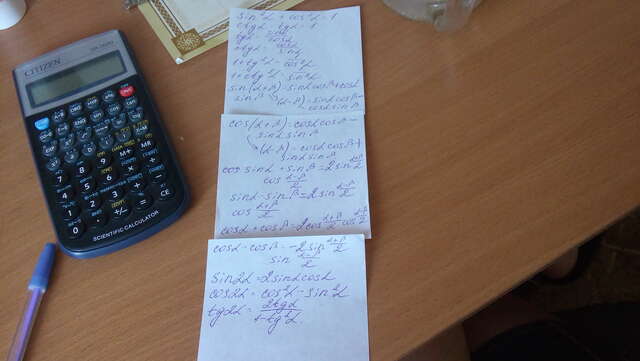 CITIZEN
SCIENTIFIC CALCULATOR
M+ MR
7 8 9
4 5 6
1 2 3
0 . +/- = CE
sin²α + cos²α = 1
ctgα · tgα = 1
tgα = sinα/cosα
ctgα = cosα/sinα
1+tg²α = 1/cos²α
1+ctg²α = 1/sin²α
sin(α+β)=sinα cosβ+cosα
sinβ (α-β)=sinα cosβ-
cosα sinβ
cos(α+β)=cosα cosβ-
sinα sinβ
(α-β)=cosα cosβ+
sinα sinβ
sinα + sinβ = 2 sin (α+β)/2
cos (α-β)/2
sinα - sinβ = 2 sin (α-β)/2
cos (α+β)/2
cosα + cosβ = 2cos (α+β)/2 cos (α-β)/2
cosα - cosβ = -2 sin (α+β)/2
sin (α-β)/2
sin2α = 2sinα cosα
cos2α = cos²α - sin²α
tg2α = 2tgα/1-tg²α